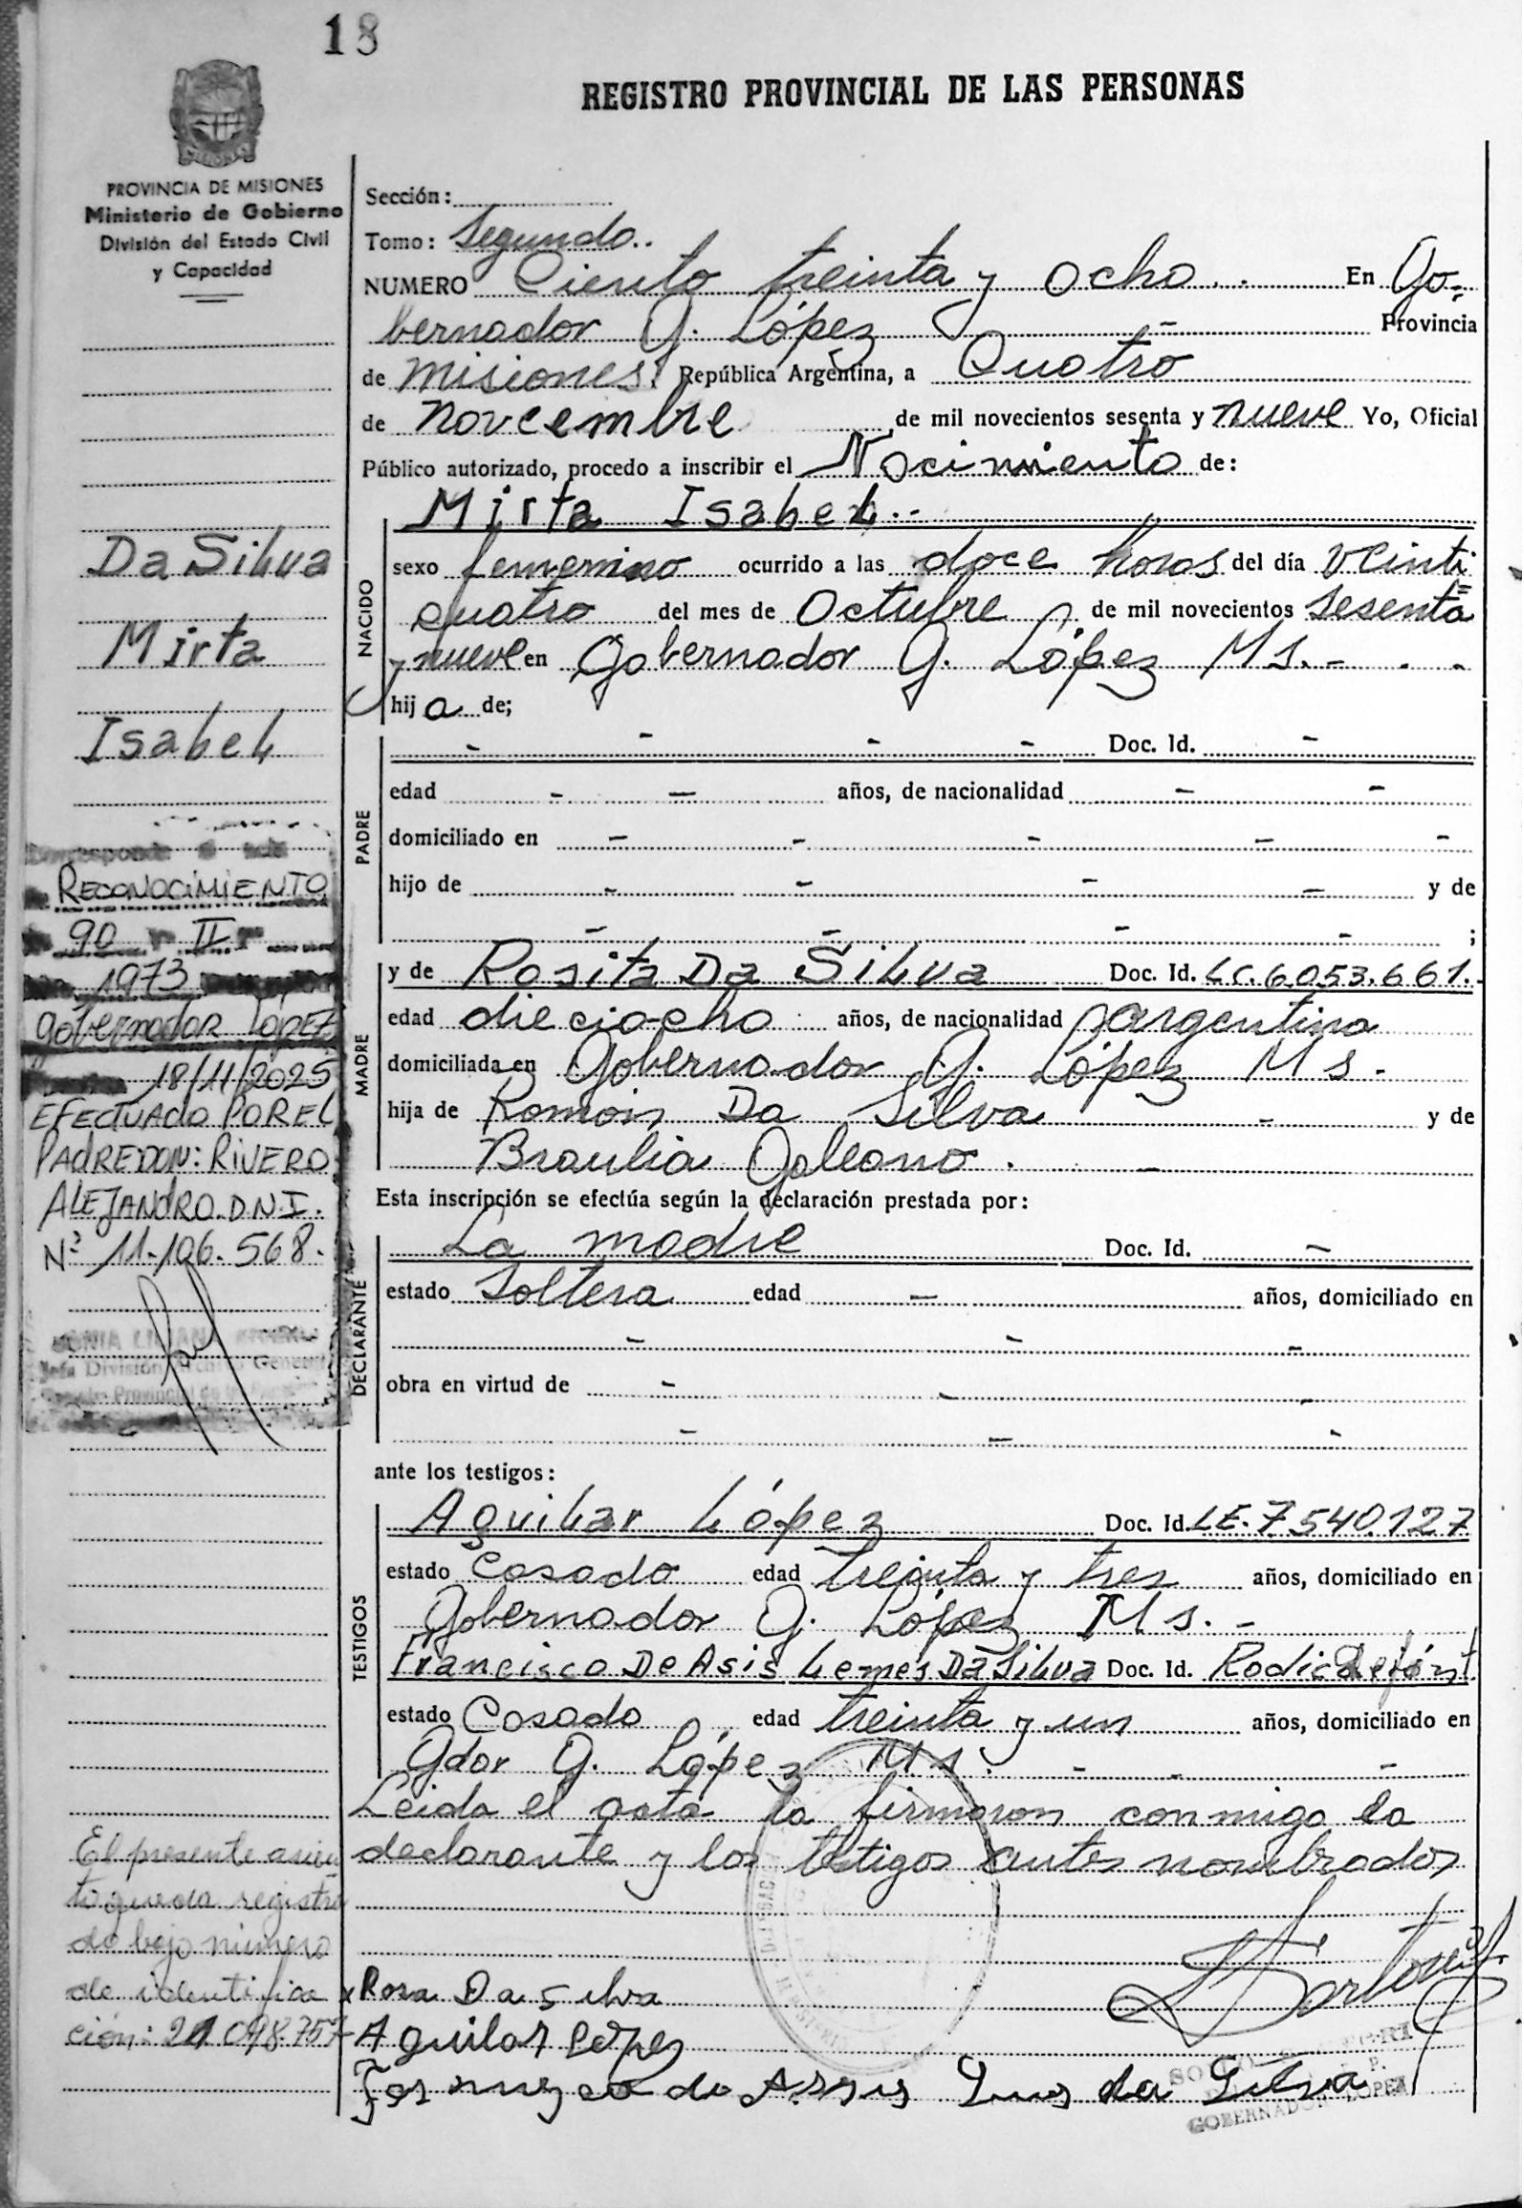 18
REGISTRO PROVINCIAL DE LAS PERSONAS
PROVINCIA DE MISIONES
Ministerio de Gobierno
División del Estado Civil
y Capacidad
Sección:
Tomo: Segundo..
NUMERO Ciento treinta y ocho . . En Go-
bernador G. López - Provincia
de Misiones. República Argentina, a Cuatro
de noviembre de mil novecientos sesenta y nueve Yo, Oficial
Público autorizado, procedo a inscribir el Nacimiento de:
Mirta Isabel.-
NACIDO
sexo femenino ocurrido a las doce horas del día veinti-
cuatro del mes de Octubre de mil novecientos sesenta
y nueve en Gobernador G. López Ms. - . .
hij a de;
PADRE
- - - - Doc. Id. -
edad - - años, de nacionalidad - -
domiciliado en - - - - -
hijo de - - - - y de
- - - - ;
MADRE
y de Rosita Da Silva Doc. Id. LC.6053.661.
edad dieciocho años, de nacionalidad argentina
domiciliada en Gobernador G. López Ms.
hija de Román Da Silva - y de
Braulia Galeano . -
Esta inscripción se efectúa según la declaración prestada por:
DECLARANTE
La madre Doc. Id. -
estado Soltera edad - años, domiciliado en
- - -
obra en virtud de - - -
- - -
ante los testigos:
TESTIGOS
Aguilar López Doc. Id. LE.7540.127
estado Casado edad treinta y tres años, domiciliado en
Gobernador G. López Ms. -
Francisco De Asis Lemes Da Silva Doc. Id. Radic
estado Casado edad treinta y un años, domiciliado en
Gdor G. López Ms. - - -
Leida el acta la firmaron conmigo la
declarante y los testigos antes nombrados
Rosa Da silva
Aguilar Lopez
de da Silva
GOBERNADOR LOPEZ
Da Silva
Mirta
Isabel
Corresponde
RECONOCIMIENTO
90 II
1973
Gobernador LOPEZ
18/11/2025
EFECTUADO POR EL
PADRE DON: RIVERO
ALEJANDRO. D.N.I.
Nº 11.106.568.
SONIA LILIANA
Jefa División Archivo General
Provincial de las
El presente asien
to queda registra
do bajo número
de identifica
ción: 21 098.757